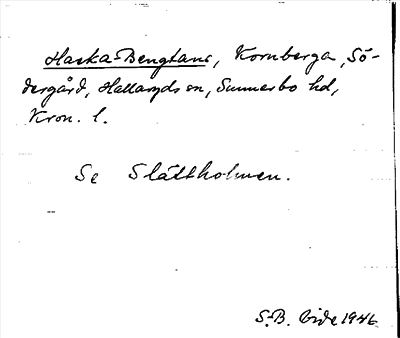 Haska-Bengtans, Kornberga, Sö-
dergård, Hallaryds sn, Sunnerbo hd,
Kron. l.
Se Slättholmen.
S.-B. Vide 1946